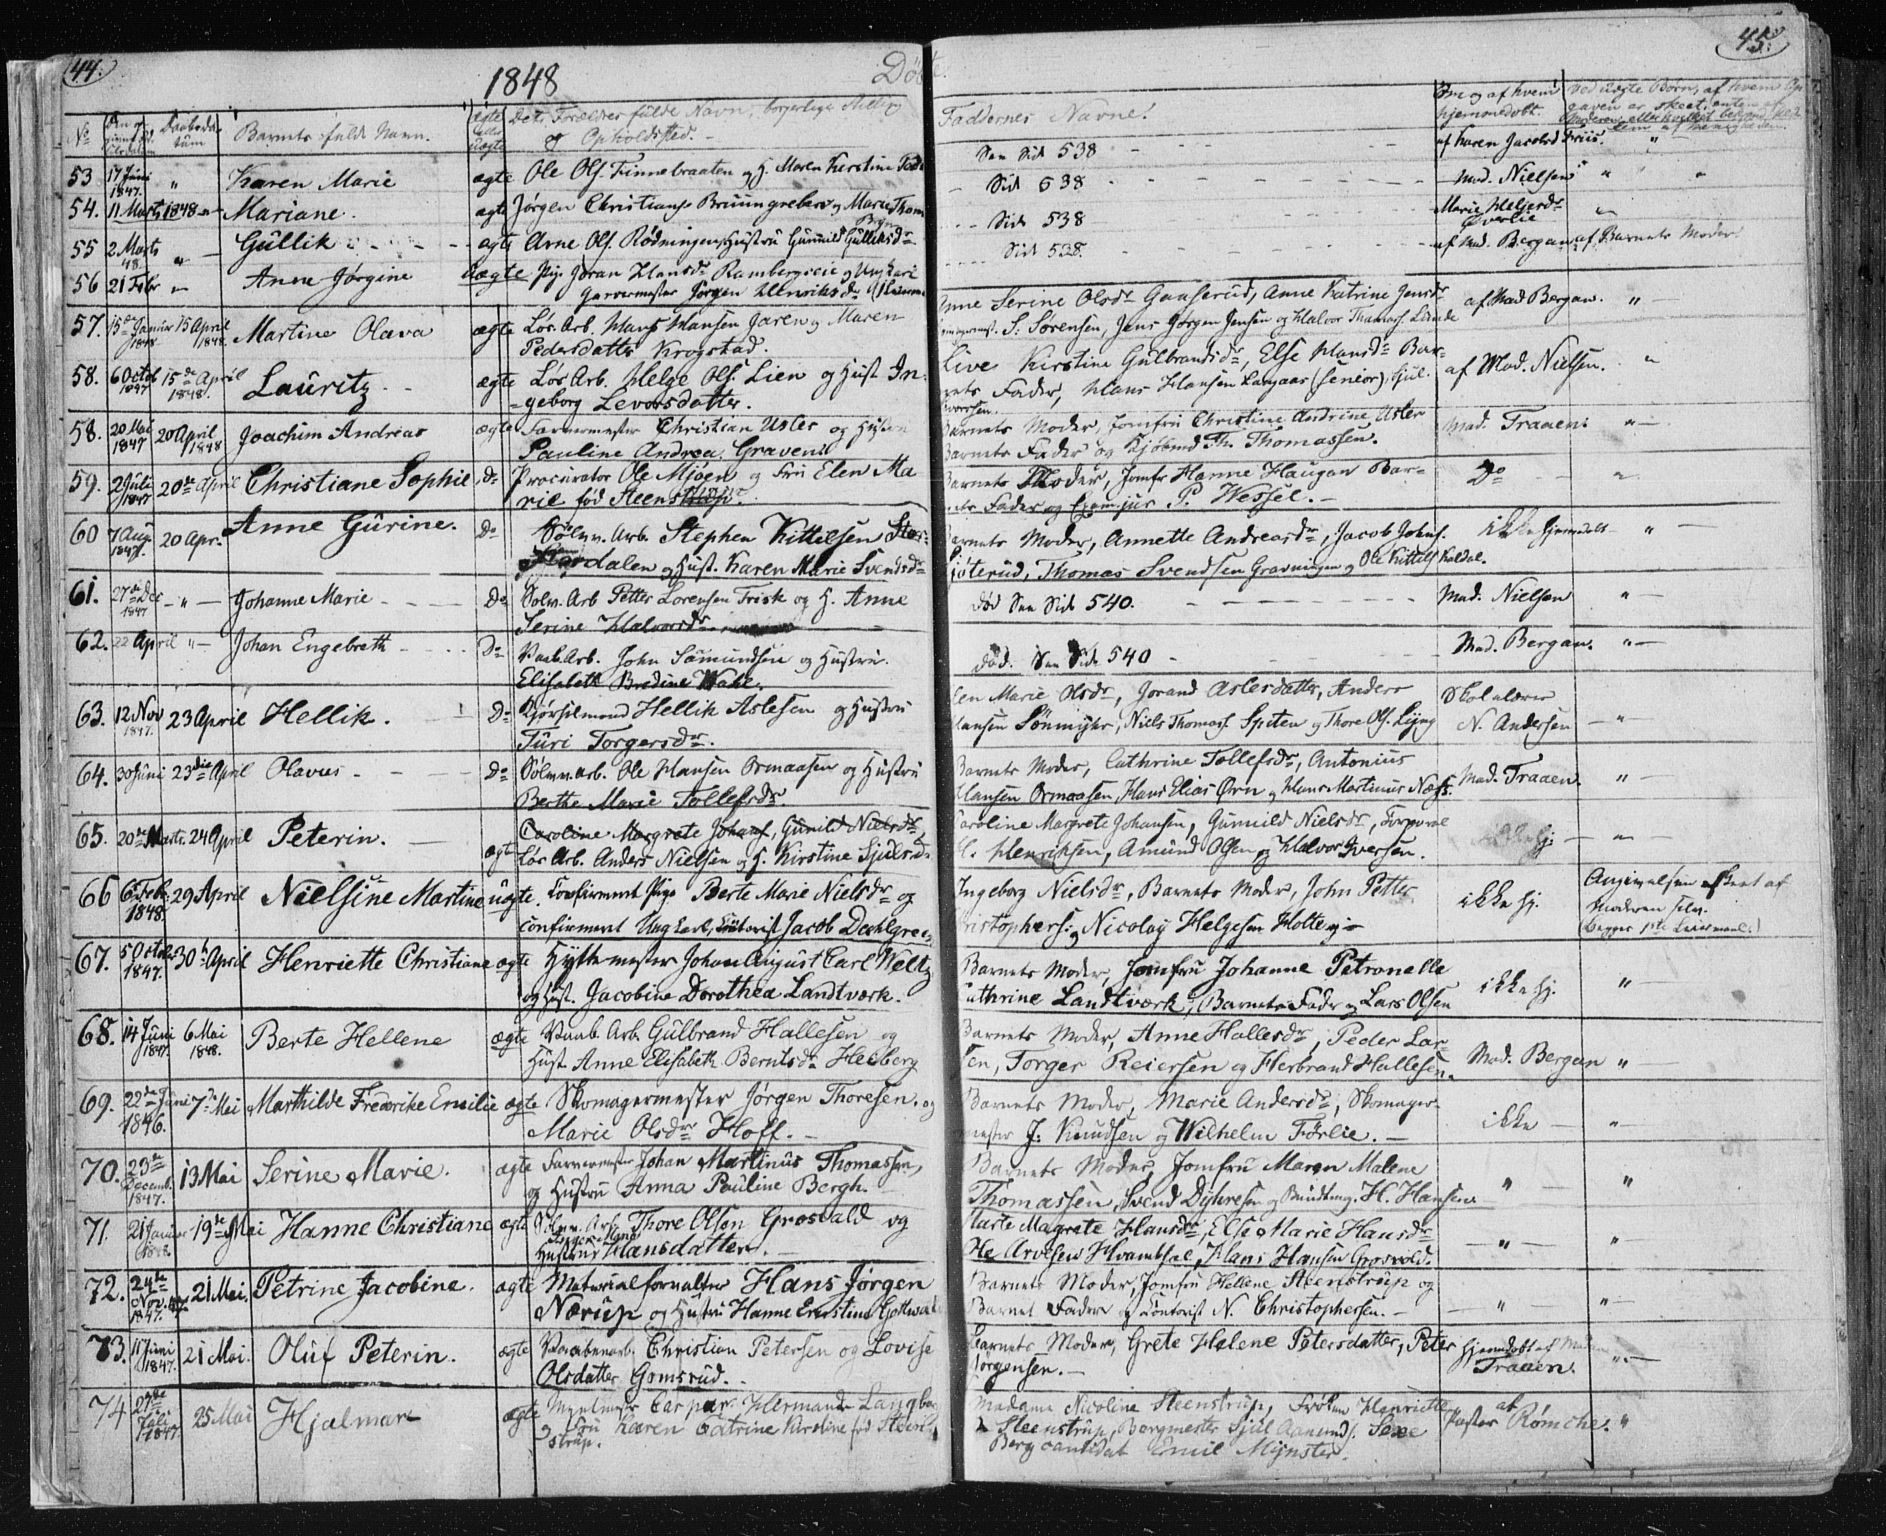 44.
1848
45.
No
Daabsda-
tum
Barnets fulde Navn.
ægte
eller
uægte
Dets Forældres fulde Navn, borgerlige Stilling
og Opholdsted.
Faddernes Navne.
Om og af hvem
hjemmedøbt.
53 17 Juni 1847. " Karen Marie ægte Ole Ols. Finnebraaten og H. Maren Kirstine
See Side 538 af Karen Jacobsd Friis. "
54. 11 Marts 1848 Mariane. ægte Jørgen Christians. Bruungreber og Marie Thom
Side 538 Mad. Nielsen "
55 2 Marts 48. " Gullik ægte Arne Ols. Rødningen Hustru Gunnild Gulliksdr
Side 538 Marie Helgesdr Øverlie "
56 21 Febr " Anne Jørgine uægte Pige Joran Hansdr Rambergseie og Ungkarl
Garvermester Jørgen Henriksdr
Side 538. af Mad. Bergan af Barnets Moder
57. 15de Januar 1848 15 April 1848. Martine Olava ægte Løs Arb. Hans Hansen Jaren og Maren
Pedersdatter Krogstad.
Anne Serine Olsdr Gaaserud, Anne Katrine Jensdr
S. Sørensen, Jens Jørgen Jensen og Halvor Thomas. Lande
af Mad Bergan. "
58. 6 Octob 1847 15de April 1848. Lauritz ægte Løs Arb. Helge Ols. Lien og Hust. In-
geborg Levorsdatter.
Live Kirstine Gulbrandsdr, Else Hansdr Bar-
nets Fader, Hans Hansen Langaas (senior), Gul.
af Mad. Nielsen. "
58. 20 Mai 1847 20 April 1848 Joachim Andreas ægte Farvermester Christian Usler og Hustru
Pauline Andrea Graveni
Barnets Moder, Jomfru Christine Andrine Usler
Barnets Fader og Kjøbmd Th. Thomassen.
Mad. Traaen. "
59. 2 Juli 1847 20de April Christiane Sophie Do Procurator Ole Mjøen og Fru Elen Ma
rie fød Steenstrup.
Barnets Moder, Jomfr Hanne Haugan Bar-
nets Fader og Exam. jur P. Wessel.
Do "
60 7 Aug. 1847. 20 Apr. Anne Gurine. Do Sølvv. Arb. Stephen Kittelsen Stor-
dalen og Hust. Karen Marie Svendsdr
Barnets Moder, Annette Andreasdr, Jacob Johns.
Thomas Svendsen Gravningen og Ole Kittels Koldal.
ikke hjemmedøbt "
61. 27de Dec 1847 " Johanne Marie Do Sølvv. Arb Petter Lorensen Frisk og H. Anne
Serine Halvorsdr
død See Side 540.
Mad. Nielsen "
62. 22 April " Johan Engebreth Do Vaab. Arb. John Samundsen og Hustru
Elisabeth Bredine Wahl.
død. See Side 540
Mad. Bergan. "
63. 12 Nov 1847. 23 April Hellik. Do Kjørselmand Hellik Aslesen og Hustru
Turi Torgersdr.
Elen Marie Olsdr, Jorand Aslesdatter, Anders
Hansen Sønmyhr, Niels Thomas. Spiten og Thore Ols. Lijng
Skolelærer
N. Andersen "
64. 30 Juni 23die April Olavus Do Sølvv. arb. Ole Hansen Ormaasen og Hustru
Berthe Marie Tollefsdr.
Barnets Moder, Cathrine Tollefsdr, Antonius
Hansen Ormaasen, Hans Elias Ørn og Hans Martinius Næss.
Mad. Traaen. "
65. 20de Marts. 24 April Peterin. ægte Caroline Margrete Johans, Gunild Nielsdr
Løs Arb. Anders Nielsen og H. Kirstine Sjulsdr.
Caroline Margrete Johansen, Gunnild Nielsdr, Corporal
Henriksen, Amund Olsen og Halvor Iversen.
"
66 6 Febr. 1848. 29 April Nielsine Martine uægte. Confirmert Pige Berte Marie Nielsdr og
confirmert Ungkarl, Contorist Jacob Dahlgreen
Ingeborg Nielsdr, Barnets Moder, John Petter
Christophers. og Nicolay Helgesen Holte
ikke hj.
Angivelsen skeet af
Moderen selv.
(Begges 1ste Leiermaal.)
67. 5 Octob 1847. 30te April Henriette Christiane ægte Hyttemester Johan August Carl Weltz
og Hust. Jacobine Dorothea Landtværk.
Barnets Moder, Jomfru Johanne Petronelle
Cathrine Landtværk, Barnets Fader og Lars Olsen
ikke hj. "
68. 14 Juni 1847. 6 Mai 1848. Berte Hellene ægte Vaab. Arb. Gulbrand Hallesen og
Hust. Anne Elisabeth Berntsdr Heiberg
Barnets Moder, Anne Hallesdr, Peder Lar-
sen, Torger Reiersen og Herbrand Hallesen.
Mad. Bergan "
69. 22de Juni 1846. 7de Mai Marthilde Frederike Emilie ægte Skomagermester Jørgen Thoresen og
Marie Olsdr Hoff.
Barnets Moder, Marie Andersdr, Skomager-
mester J. Knudsen og Wilhelm Førlie.
ikke "
70. 23de Decemb. 1847. 13 Mai Serine Marie. ægte Farvermester Johan Martinus Thomassen,
og Hustru Anna Pauline Bergh.
Barnets Moder, Jomfru Maren Malene
Thomassen, Svend Dyhresen og Bundtmg. H. Hansen.
" "
71. 21 Januar 1848. 19de Mai Hanne Christiane ægte Sølvv. Arb Thore Olsen Grosvald og
Hustru Hansdatter.
Marte Magrete Hansdr, Else Marie Hansdr
Ole Arvesen Hvambsal, Hans Hansen Grosvold.
" "
72. 24de Nov. 1847. 21 Mai. Petrine Jacobine. ægte Materialforvalter Hans Jørgen
Nærup og Hustru Hanne Ernstine
Barnets Moder, Jomfru Hellene Steenstrup og
Barnet Fader og Contorist N. Christophersen.
" "
73. 11 Juni 1847. 21 Mai. Oluf Peterin. ægte Vaabenarb. Christian Petersen og Lovise
Olsdatter Gomsrud.
Barnets Moder, Grete Helene Petersdatter, Peter
Jørgensen.
Hjemdøbt af Mad
Traaen. "
74 1847 25 Mai Hjalmar ægte Casper Hermandr Langberg
og Fru Karen Catrine Kirstine fød Steen-
strup.
Madame Nicoline Steenstrup, Frøken Henriette
Steenstrup, Bergmester Sjul Aamunds. Sexe
Bergcandidat Emil Mÿnster.
af
Pastor Rømche. "